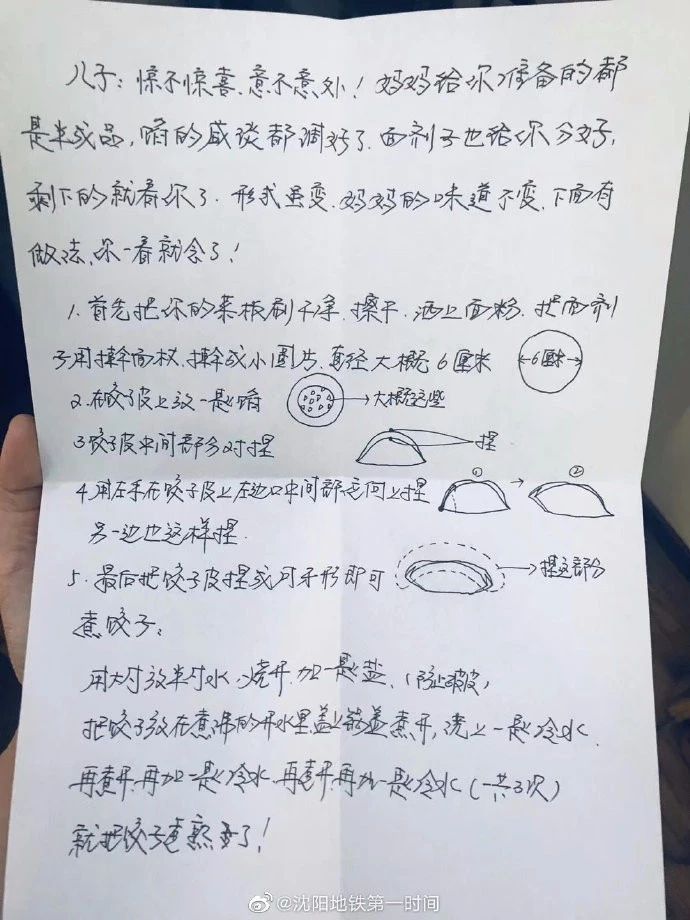 儿子：惊不惊喜、意不意外！妈妈给你准备的都
是半成品，馅的咸淡都调好了．面剂子也给你分好，
剩下的就看你了．形式虽变．妈妈的味道不变．下面有
做法、你一看就会了！
1．首先把你的菜板刷干净．擦干．洒上面粉．把面剂
子用擀面杖．擀成小圆片．直径大概6厘米
←6厘米→
2．在饺子皮上放一匙馅
→大概这些
3饺子皮中间部分对捏
捏
4．用左手在饺子皮上左边口中间部位向上捏
① → ②
另一边也这样捏．
5．最后把饺子皮捏成月牙形即可
→捏这部分
煮饺子：
用大付放半付水．烧开．加一匙盐、（防止破皮）
把饺子放在煮沸的开水里盖上锅盖煮开，浇上一匙冷水．
再煮开．再加一匙冷水．再煮开再加一匙冷水（一共3次）
就把饺子煮熟了！
@沈阳地铁第一时间